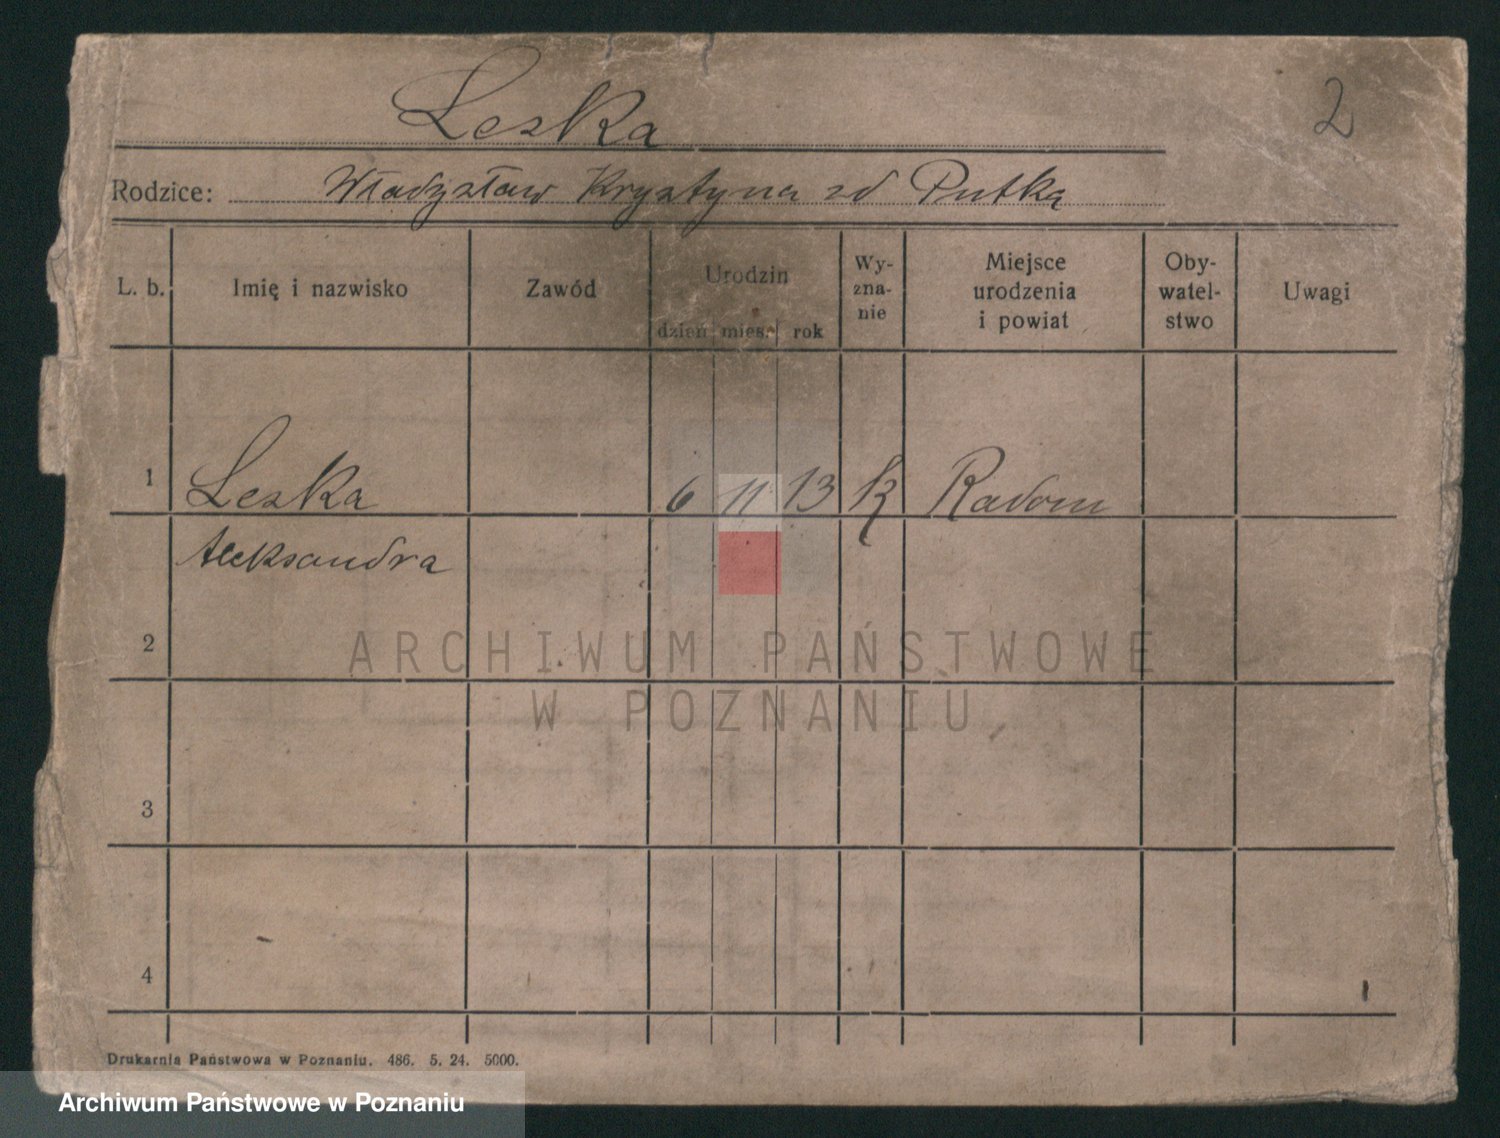 Leska
2
Rodzice: Władysław Krystyna zd Putką
L. b. Imię i nazwisko Zawód Urodzin dzień mies. rok Wy-zna-nie Miejsce urodzenia i powiat Oby-watel-stwo Uwagi
1 Leska 6 11 13 k Radom
Aleksandra
2
ARCHIWUM PAŃSTWOWE
W POZNANIU
3
4
Drukarnia Państwowa w Poznaniu. 486. 5. 24. 5000.
Archiwum Państwowe w Poznaniu